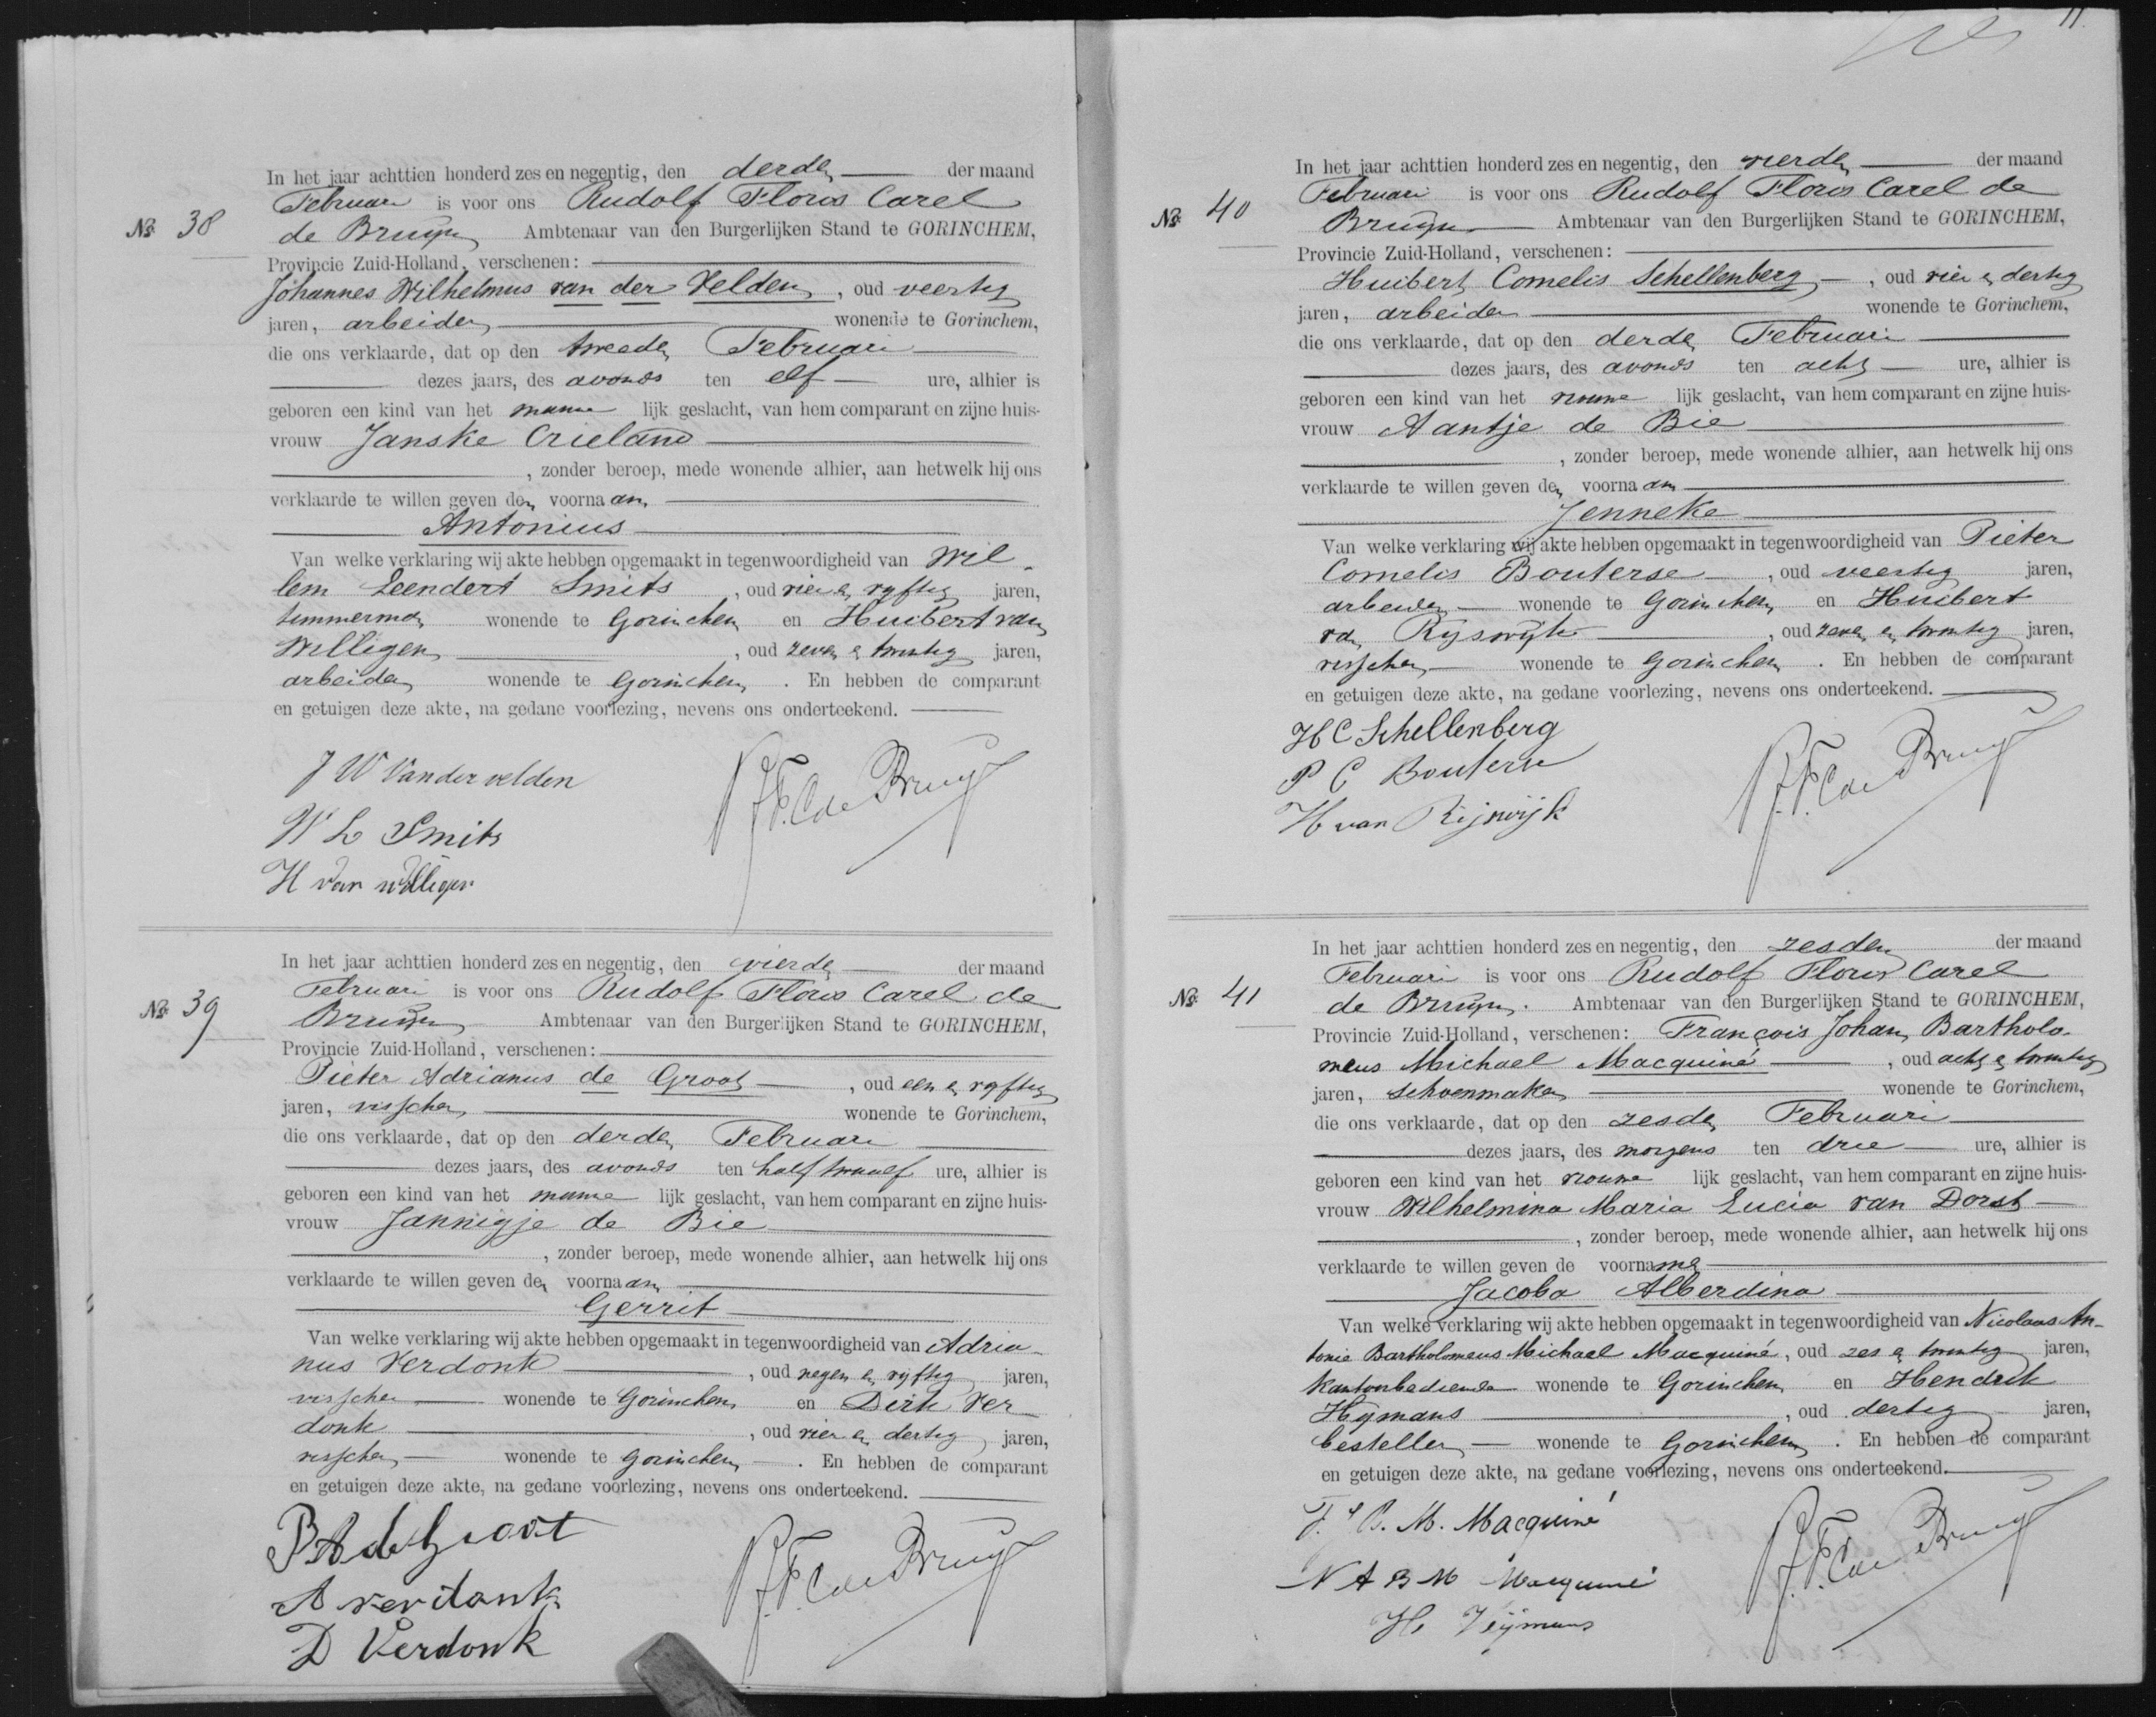 In het jaar achttien honderd zes en negentig, den derden der maand
Februari is voor ons Rudolf Floris Carel
No. 38 de Bruijn Ambtenaar van den Burgerlijken Stand te GORINCHEM,
Provincie Zuid-Holland, verschenen:
Johannes Wilhelmus van der Velden, oud veertig
jaren, arbeider wonende te Gorinchem,
die ons verklaarde, dat op den tweeden Februari
dezes jaars, des avonds ten elf ure, alhier is
geboren een kind van het manne lijk geslacht, van hem comparant en zijne huis-
vrouw Janske Crieland
, zonder beroep, mede wonende alhier, aan hetwelk hij ons
verklaarde te willen geven den voornaam
Antonius
Van welke verklaring wij akte hebben opgemaakt in tegenwoordigheid van Wil-
lem Leendert Smits, oud vier en vyftig jaren,
timmerman wonende te Gorinchem en Huibert van
Willigen, oud zeven en twintig jaren,
arbeider wonende te Gorinchem. En hebben de comparant
en getuigen deze akte, na gedane voorlezing, nevens ons onderteekend.
J W Van der velden
W L Smits
H van willigen
R.F.C de Bruijn
In het jaar achttien honderd zes en negentig, den vierden der maand
Februari is voor ons Rudolf Floris Carel de
No. 39 Bruijn Ambtenaar van den Burgerlijken Stand te GORINCHEM,
Provincie Zuid-Holland, verschenen:
Pieter Adrianus de Groot, oud een en vyftig
jaren, visscher wonende te Gorinchem,
die ons verklaarde, dat op den derden Februari
dezes jaars, des avonds ten half twaalf ure, alhier is
geboren een kind van het manne lijk geslacht, van hem comparant en zijne huis-
vrouw Jannigje de Bie
, zonder beroep, mede wonende alhier, aan hetwelk hij ons
verklaarde te willen geven den voornaam
Gerrit
Van welke verklaring wij akte hebben opgemaakt in tegenwoordigheid van Adria-
nus Verdonk, oud negen en vyftig jaren,
visscher wonende te Gorinchem en Dirk Ver-
donk, oud vier en dertig jaren,
visscher wonende te Gorinchem. En hebben de comparant
en getuigen deze akte, na gedane voorlezing, nevens ons onderteekend.
P A de Groot
A verdonk
D Verdonk
R.F.C de Bruijn
11.
In het jaar achttien honderd zes en negentig, den vierden der maand
Februari is voor ons Rudolf Floris Carel de
No. 40 Bruijn Ambtenaar van den Burgerlijken Stand te GORINCHEM,
Provincie Zuid-Holland, verschenen:
Huibert Cornelis Schellenberg, oud vier en dertig
jaren, arbeider wonende te Gorinchem,
die ons verklaarde, dat op den derden Februari
dezes jaars, des avonds ten acht ure, alhier is
geboren een kind van het vrouwe lijk geslacht, van hem comparant en zijne huis-
vrouw Aantje de Bie
, zonder beroep, mede wonende alhier, aan hetwelk hij ons
verklaarde te willen geven den voornaam
Jenneke
Van welke verklaring wij akte hebben opgemaakt in tegenwoordigheid van Pieter
Cornelis Bouterse, oud veertig jaren,
arbeider wonende te Gorinchem en Huibert
van Rijswijk, oud zeven en twintig jaren,
visscher wonende te Gorinchem. En hebben de comparant
en getuigen deze akte, na gedane voorlezing, nevens ons onderteekend.
H C Schellenberg
P C Bouterse
H van Rijswijk
R.F.C de Bruijn
In het jaar achttien honderd zes en negentig, den zesden der maand
Februari is voor ons Rudolf Floris Carel
No. 41 de Bruijn. Ambtenaar van den Burgerlijken Stand te GORINCHEM,
Provincie Zuid-Holland, verschenen: François Johan Bartholo-
meus Michael Macquiné, oud acht en twintig
jaren, schoenmaker wonende te Gorinchem,
die ons verklaarde, dat op den zesden Februari
dezes jaars, des morgens ten drie ure, alhier is
geboren een kind van het vrouwe lijk geslacht, van hem comparant en zijne huis-
vrouw Wilhelmina Maria Lucia van Dorst
, zonder beroep, mede wonende alhier, aan hetwelk hij ons
verklaarde te willen geven de voornamen
Jacoba Alberdina
Van welke verklaring wij akte hebben opgemaakt in tegenwoordigheid van Nicolaas An-
tonie Bartholomeus Michael Macquiné, oud zes en twintig jaren,
kantoorbediende wonende te Gorinchem en Hendrik
Heymans, oud dertig jaren,
besteller wonende te Gorinchem. En hebben de comparant
en getuigen deze akte, na gedane voorlezing, nevens ons onderteekend.
F. J B. M. Macquiné
N A B M Macquiné
H Heijmans
R.F.C de Bruijn